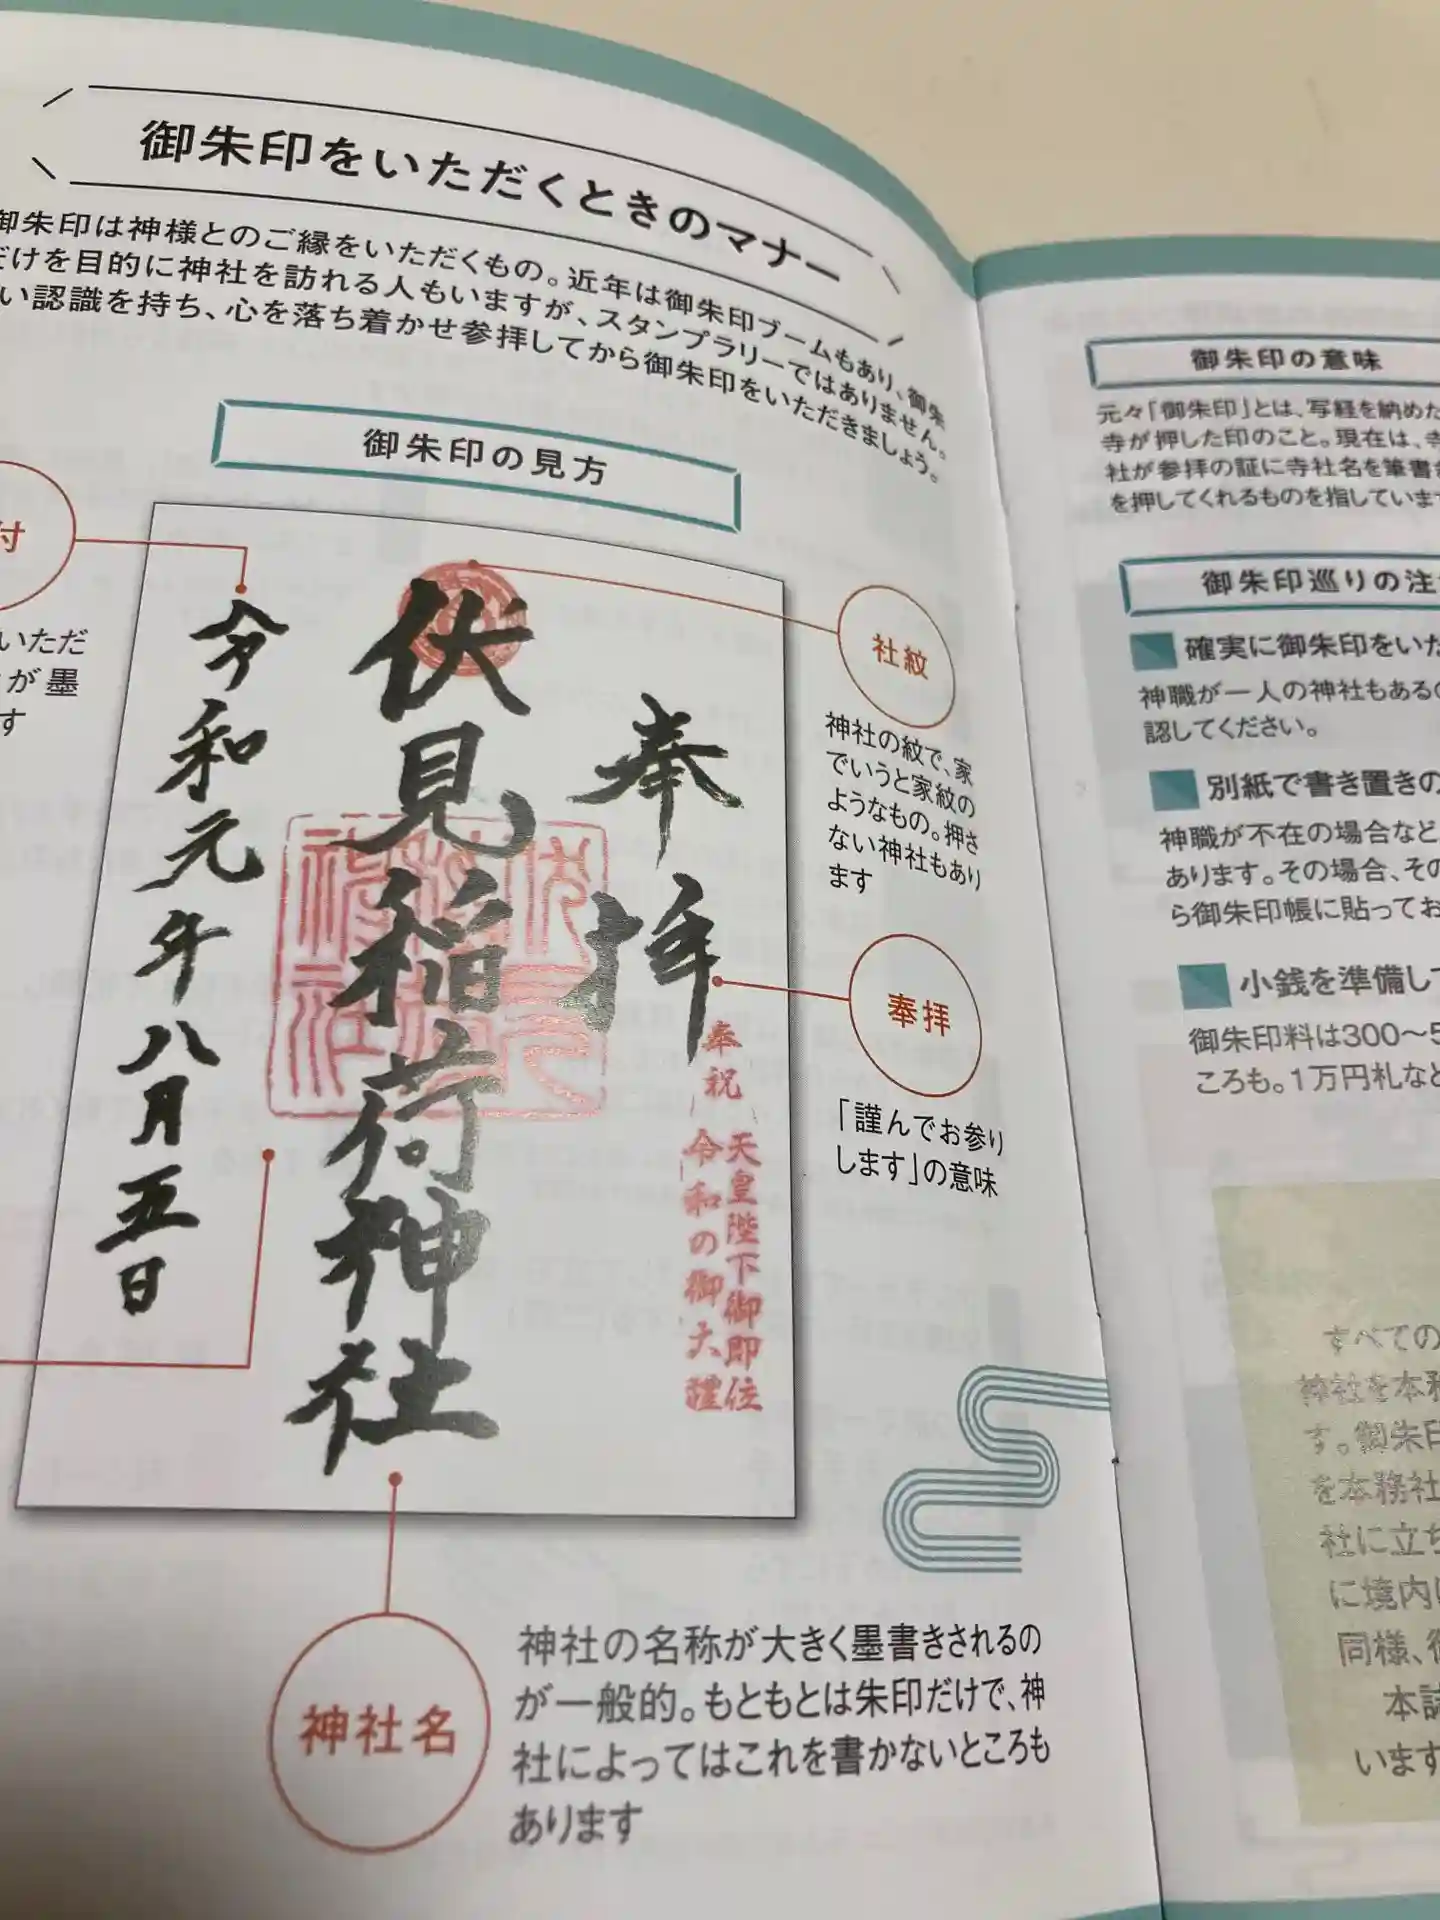 御朱印をいただくときのマナー
御朱印は神様とのご縁をいただくもの。近年は御朱印ブームもあり、御朱
だけを目的に神社を訪れる人もいますが、スタンプラリーではありません。
い認識を持ち、心を落ち着かせ参拝してから御朱印をいただきましょう。
御朱印の見方
付
いただ
が墨
す
奉拝
伏見稲荷神社
令和元年八月五日
奉祝
天皇陛下御即位
令和の御大禮
社紋
神社の紋で、家
でいうと家紋の
ようなもの。押さ
ない神社もあり
ます
奉拝
「謹んでお参り
します」の意味
神社名
神社の名称が大きく墨書きされるの
が一般的。もともとは朱印だけで、神
社によってはこれを書かないところも
あります
御朱印の意味
元々「御朱印」とは、写経を納めた
寺が押した印のこと。現在は、寺
社が参拝の証に寺社名を筆書き
を押してくれるものを指しています
御朱印巡りの注
確実に御朱印をいた
神職が一人の神社もあるの
認してください。
別紙で書き置きの
神職が不在の場合など
あります。その場合、その
ら御朱印帳に貼ってお
小銭を準備して
御朱印料は300〜5
ころも。1万円札など
すべての
神社を本務
す。御朱印
を本務社
社に立ち
に境内
同様、御
本誌
います